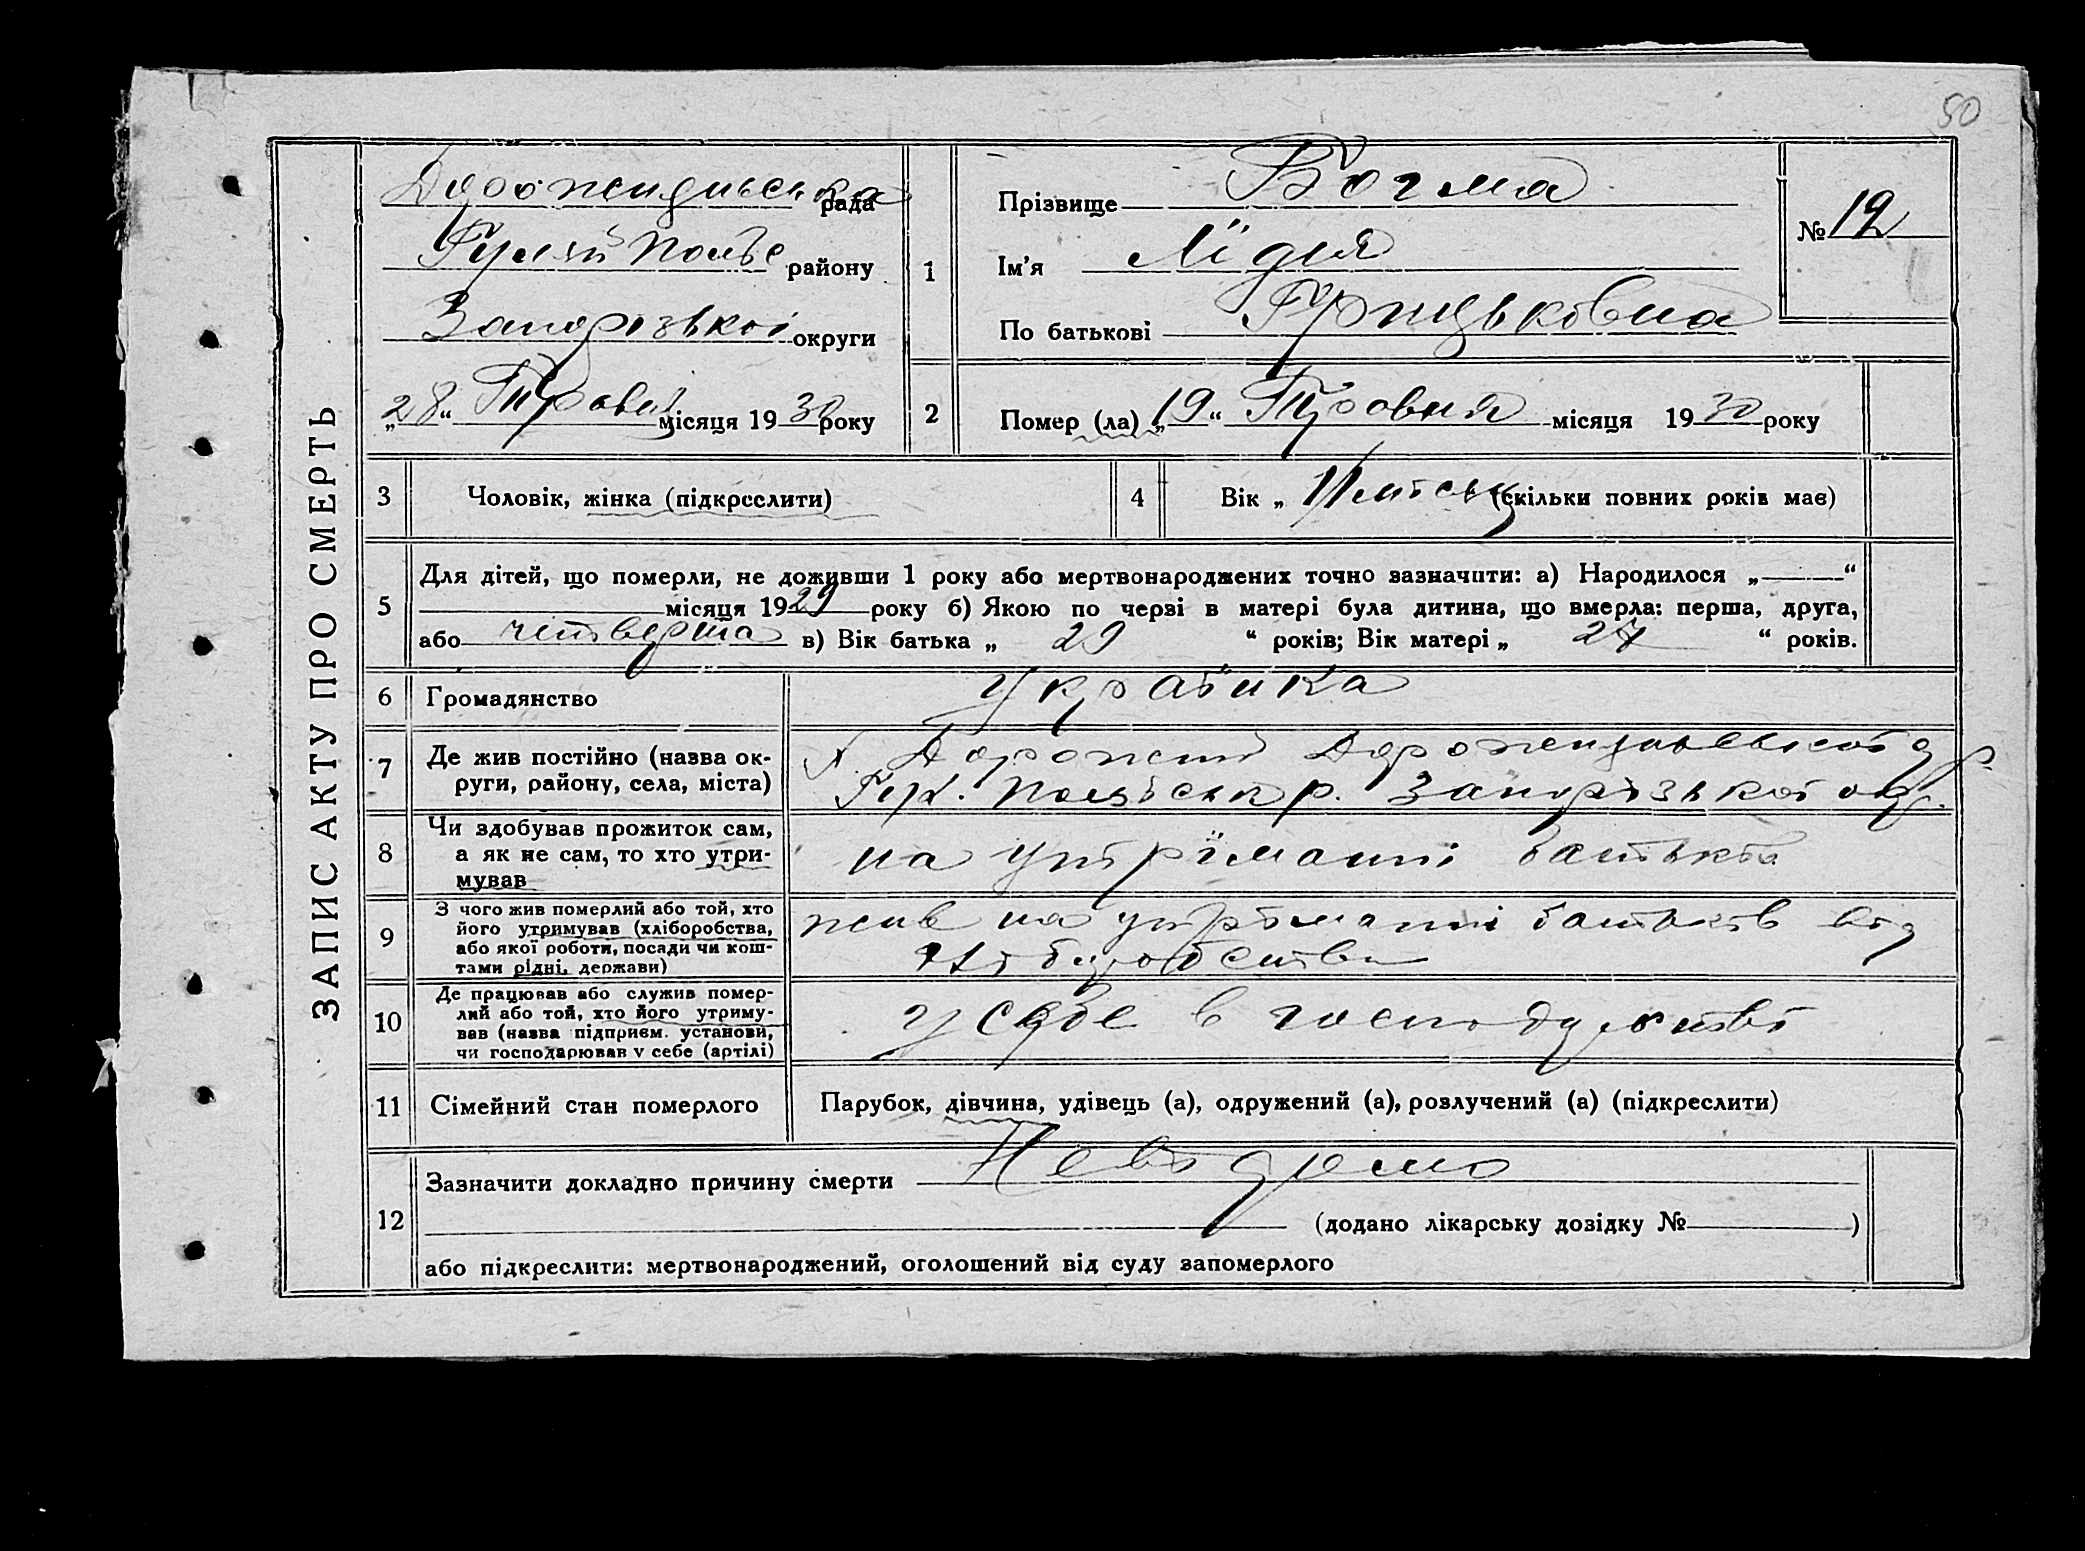 50
ЗАПИС АКТУ ПРО СМЕРТЬ
рада
Гуляй Польс району
Запорізької округи
„28“ Травня місяця 1930 року
1
Прізвище Богма
Ім’я Лідія
По батькові Грицьковна
№ 12
2
Помер (ла) „19“ Травня місяця 1930 року
3 Чоловік, жінка (підкреслити)
4 Вік „ 11 місяц (скільки повних років має)
5 Для дітей, що померли, не доживши 1 року або мертвонароджених точно зазначити: а) Народилося „——“
місяця 1929 року б) Якою по черзі в матері була дитина, що вмерла: перша, друга,
або четверта в) Вік батька „ 29 “ років; Вік матері „ 27 “ років.
6 Громадянство Українка
7 Де жив постійно (назва округи, району, села, міста)
р. Запорізької окр.
8 Чи здобував прожиток сам,
а як не сам, то хто утри-
мував
на утріманні батьків
9 З чого жив померлий або той, хто
його утримував (хліборобства,
або якої роботи, посади чи кош-
тами рідні, держави)
жив на утріманні батьків від
хліборобства
10 Де працював або служив помер-
лий або той, хто його утриму-
вав (назва підприєм. установи,
чи господарював у себе (артілі)
у себе в господарстві
11 Сімейний стан померлого Парубок, дівчина, удівець (а), одружений (а), розлучений (а) (підкреслити)
12 Зазначити докладно причину смерти Невідомо
(додано лікарську довідку № )
або підкреслити: мертвонароджений, оголошений від суду запомерлого